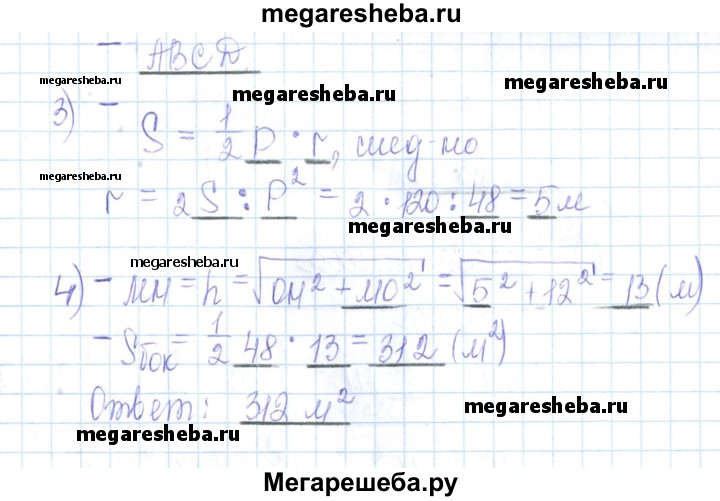 megaresheba.ru
- ABCD
megaresheba.ru
megaresheba.ru
3) -
S = 1/2 P · r, след-но
megaresheba.ru
r = 2S : P² = 2 · 120 : 48 = 5 м
megaresheba.ru
megaresheba.ru
4) - МН = h = √(ОН² + МО²) = √(5² + 12²) = 13 (м)
- Sбок = 1/2 48 · 13 = 312 (м²)
Ответ: 312 м²
megaresheba.ru
megaresheba.ru
Мегарешеба.ру